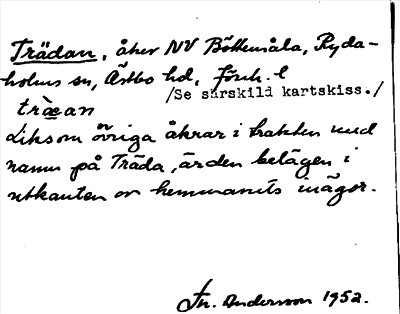 Trädan, åker NV Böttemåla, Ryda-
holms sn, Östbo hd, Jönk. l
/Se särskild kartskiss./
träean
Liksom övriga åkrar i trakten med
namn på Träda, är den belägen i
utkanten av hemmanets inägor.
Fr. Andersson 1952.